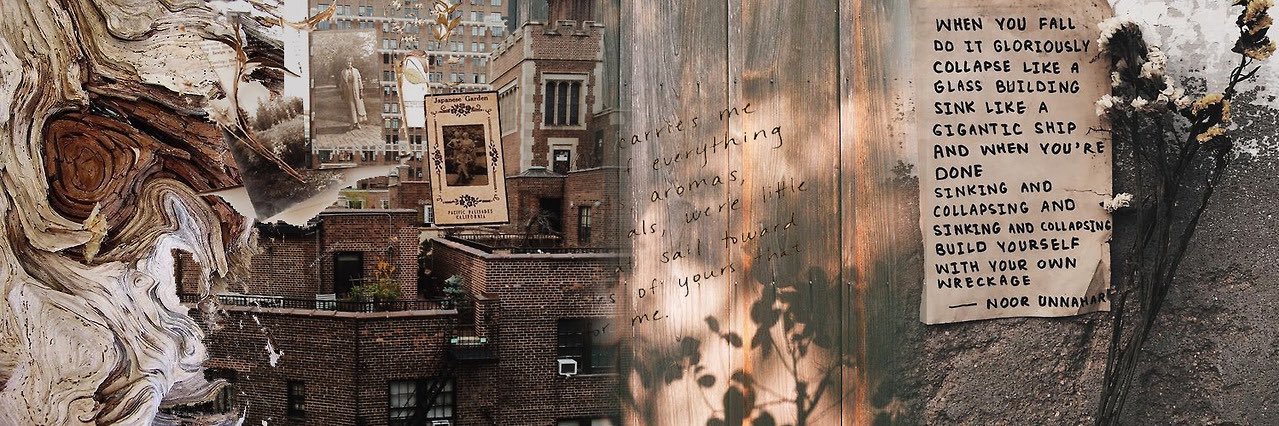 Japanese Garden
PACIFIC PALISADES
CALIFORNIA
carries me
everything
aromas,
als, were little
sail toward
of yours that
or me.
WHEN YOU FALL
DO IT GLORIOUSLY
COLLAPSE LIKE A
GLASS BUILDING
SINK LIKE A
GIGANTIC SHIP
AND WHEN YOU'RE
DONE
SINKING AND
COLLAPSING AND
SINKING AND COLLAPSING
BUILD YOURSELF
WITH YOUR OWN
WRECKAGE
— NOOR UNNAHAR